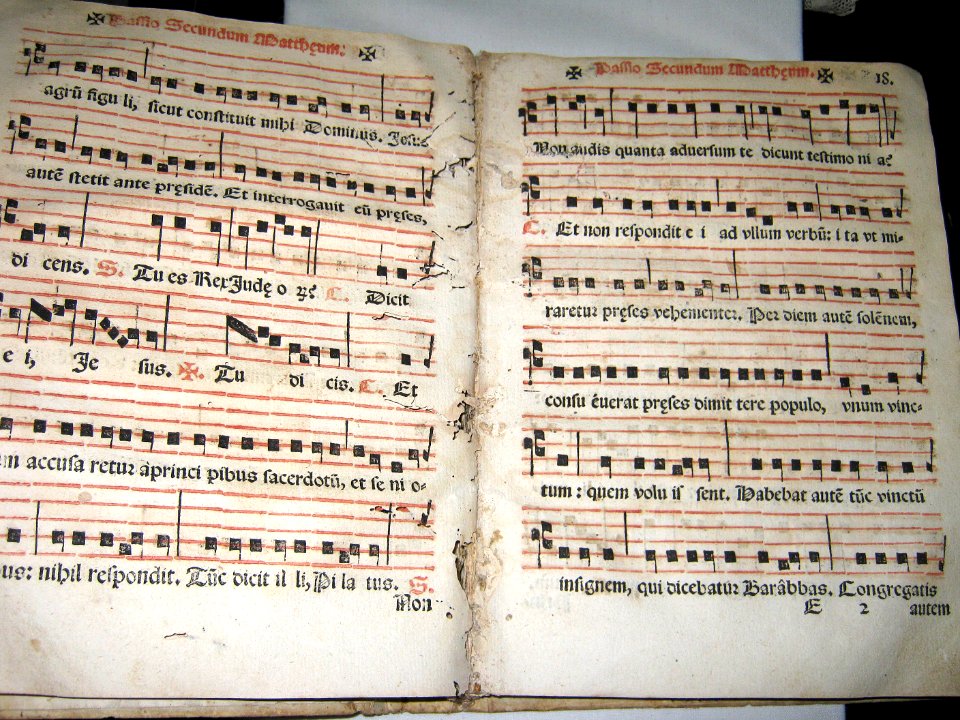 ✠ Passio Secundum Matthęum. ✠
agrũ figu li, sicut constituit mihi Dominus. Jesus
autẽ stetit ante pręsidẽ. Et interrogavit eũ pręses,
di cens. S. Tu es Rex Judę o C. Dicit
e i, Je sus. ✠. Tu di cis. C. Et
accusa retur à princi pibus sacerdotũ, et se ni o-
us: nihil respondit. Tũc dicit il li, Pi la tus. S.
Non
✠ Passio Secundum Matthęum. ✠ 18.
Non audis quanta adversum te dicunt testimo ni a?
C. Et non respondit e i ad vllum verbũ: i ta vt mi-
raretur pręses vehementer. Per diem autẽ solẽnem,
consu êuerat pręses dimit tere populo, vnum vinc-
tum: quem volu is sent. Habebat autẽ tũc vinctũ
insignem, qui dicebatur Barâbbas. Congregatis
E 2 autem